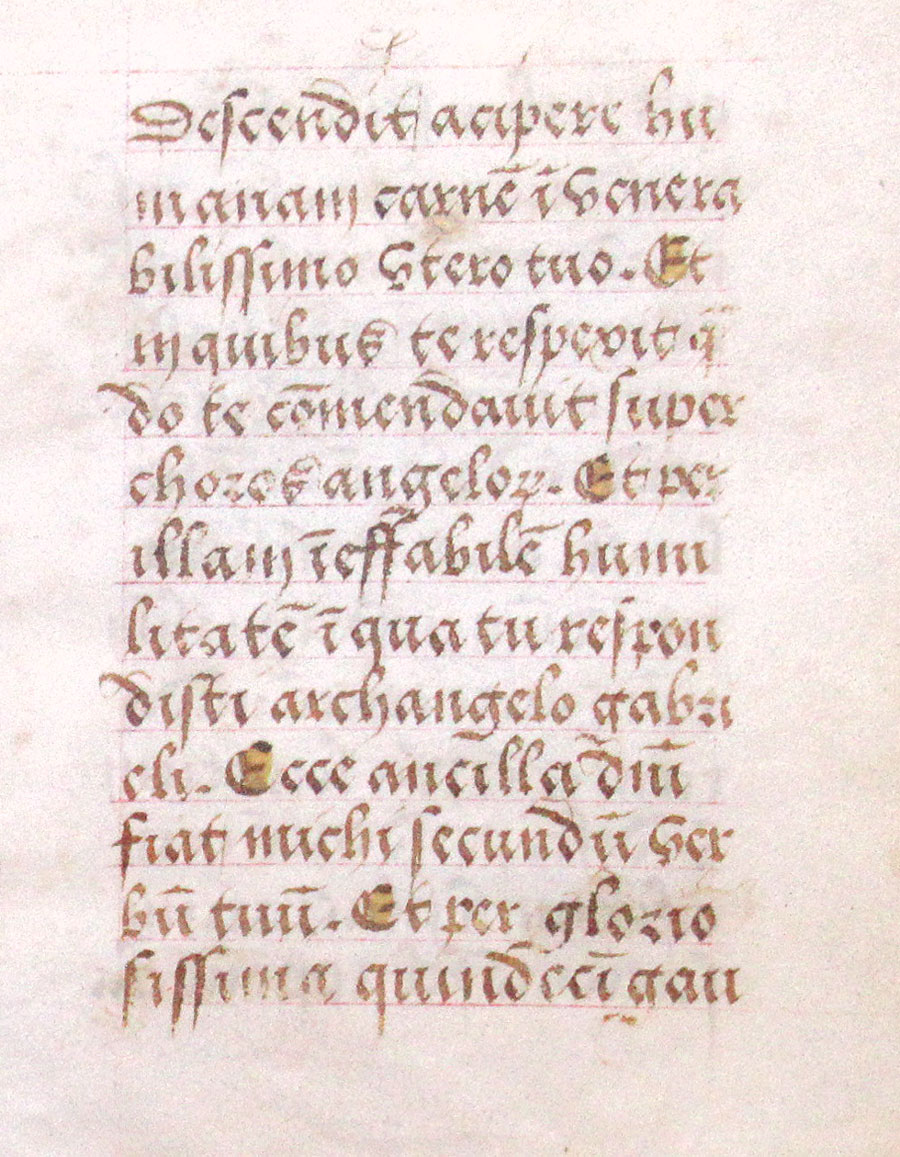 Descendit acipere hu
manam carnē ī venera
bilissimo vtero tuo. Et
in quibus te respexit qn̄
do te cōmendauit super
chores angeloꝝ. Et per
illam īeffabilē humi
litatē ī qua tu respon
disti archangelo gabri
eli. Ecce ancilla dn̄i
fiat michi secundū ver
bū tuū. Et per glorio
sissima quindecī gau